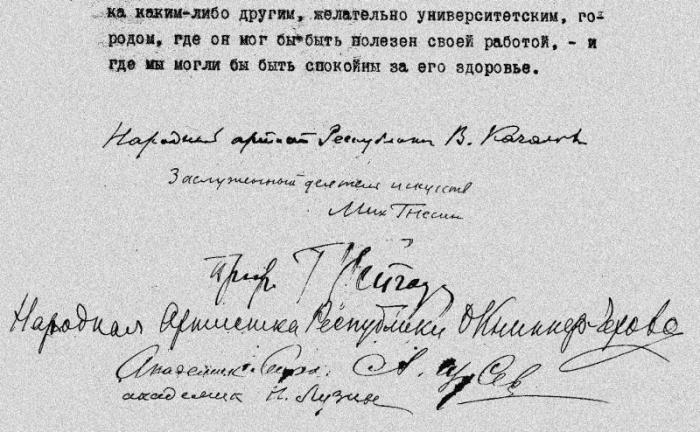 ка каким-либо другим, желательно университетским, го-
родом, где он мог бы быть полезен своей работой, - и
где мы могли бы быть спокойны за его здоровье.
Народный артист Республики В. Качалов
Заслуженный деятель искусств
Мих Гнесин
проф. Г Нейгауз
Народная Артистка Республики О Книппер-Чехова
Академик А. Щусев
академик Н. Лузин